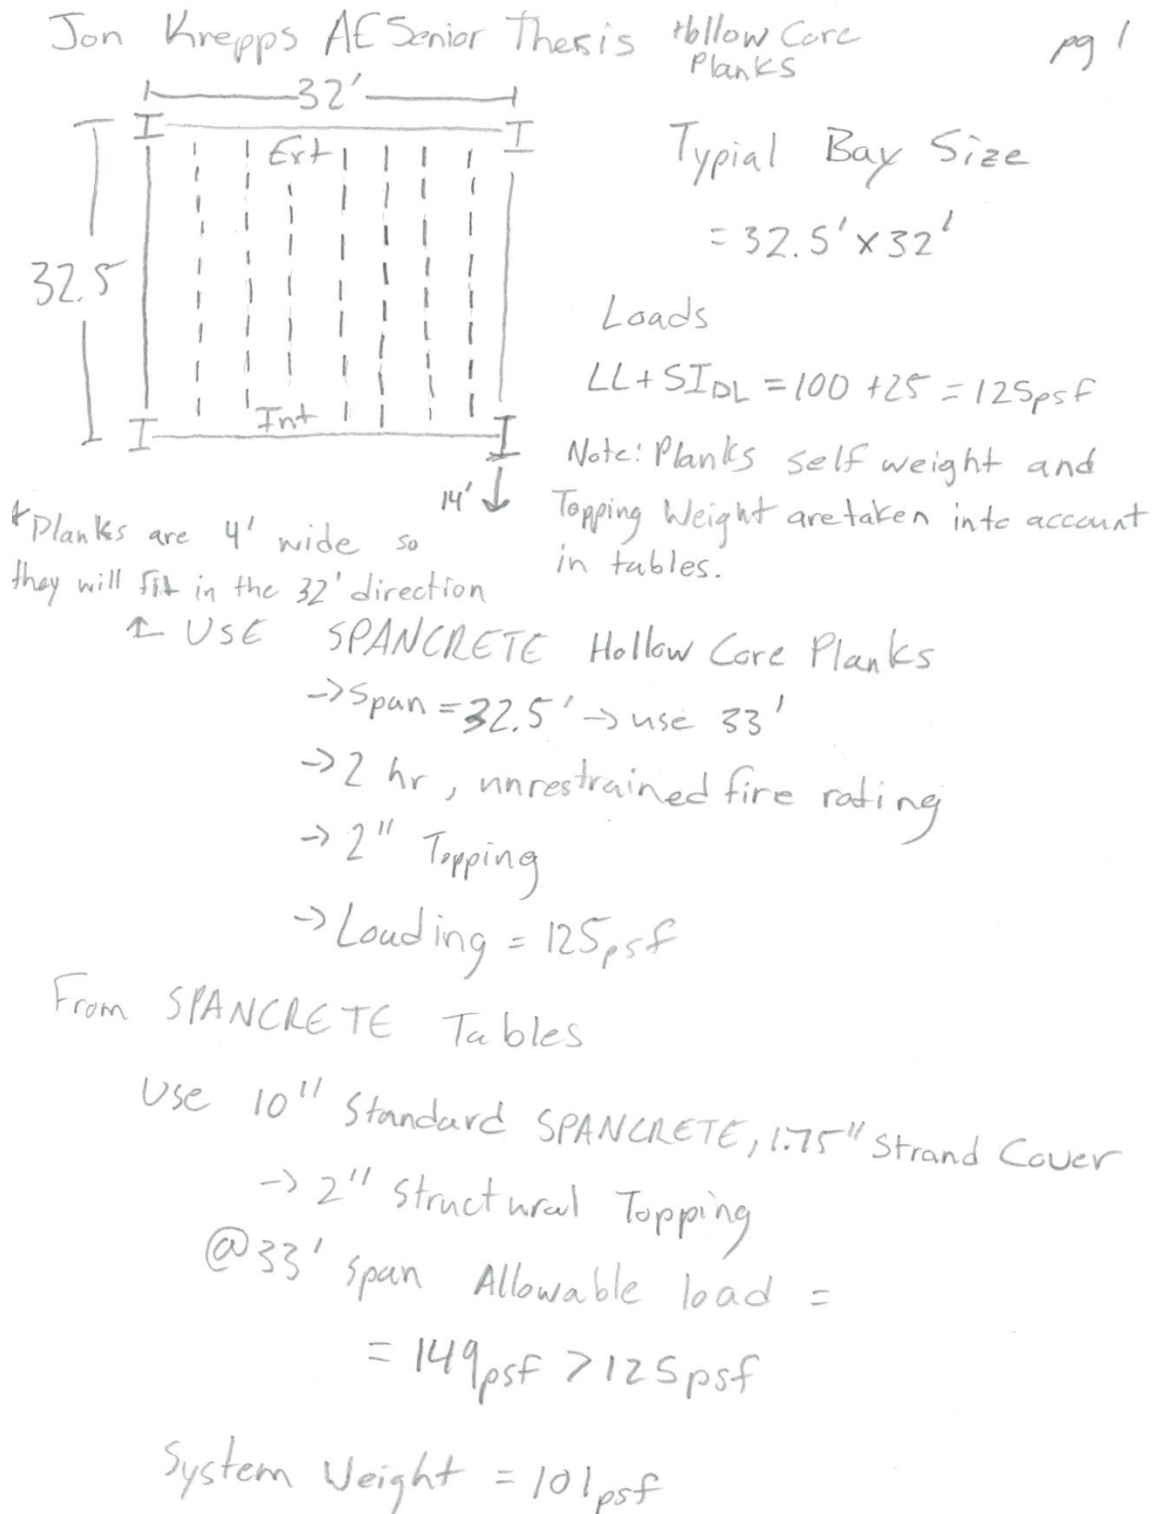 Jon Krepps AE Senior Thesis Hollow Core Planks pg 1
32'
Ext
32.5
Int
14'
Typial Bay Size
= 32.5' x 32'
Loads
LL + SIDL = 100 + 25 = 125psf
Note: Planks self weight and
Topping Weight are taken into account
in tables.
*Planks are 4' wide so
they will fit in the 32' direction
↑ USE SPANCRETE Hollow Core Planks
→ Span = 32.5' → use 33'
→ 2 hr, unrestrained fire rating
→ 2" Topping
→ Loading = 125psf
From SPANCRETE Tables
Use 10" Standard SPANCRETE, 1.75" Strand Cover
→ 2" Structural Topping
@ 33' span Allowable load =
= 149psf > 125psf
System Weight = 101psf